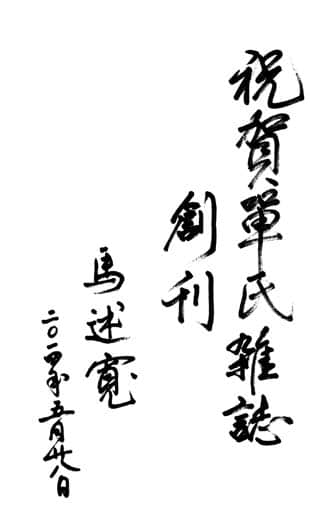 祝賀單氏雜誌
創刊
馬述寬
二〇一四年五月廿八日